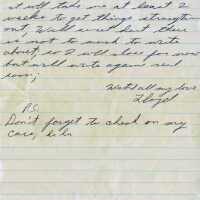 it will take me at least 2
weeks to get things straighten
out. Well sweetheart there
is not to much to write
about, so I will close for now
but will write again real
soon;
With all my love
Lloyd
P.S.
Don't forget to check on my
cars,